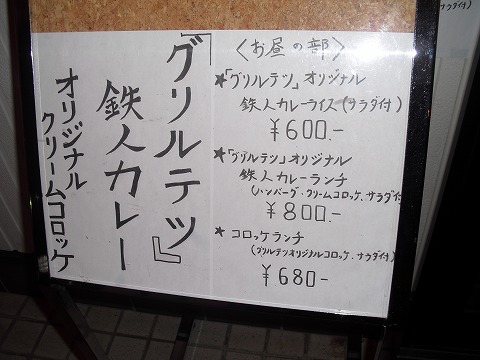 『グリルテツ』
鉄人カレー
オリジナル
クリームコロッケ
〈お昼の部〉
★「グリルテツ」オリジナル
鉄人カレーライス(サラダ付)
¥600.-
★「グリルテツ」オリジナル
鉄人カレーランチ
(ハンバーグ、クリームコロッケ、サラダ付)
¥800.-
★ コロッケランチ
(グリルテツオリジナルコロッケ、サラダ付)
¥680-